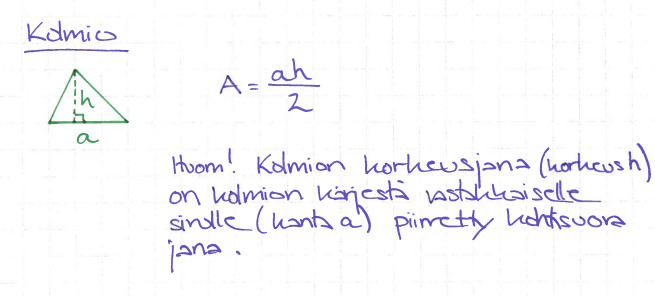 Kolmio
A = ah/2
h
a
Huom! Kolmion korkeusjana (korkeus h)
on kolmion kärjestä vastakkaiselle
sivulle (kanta a) piirretty kohtisuora
jana.